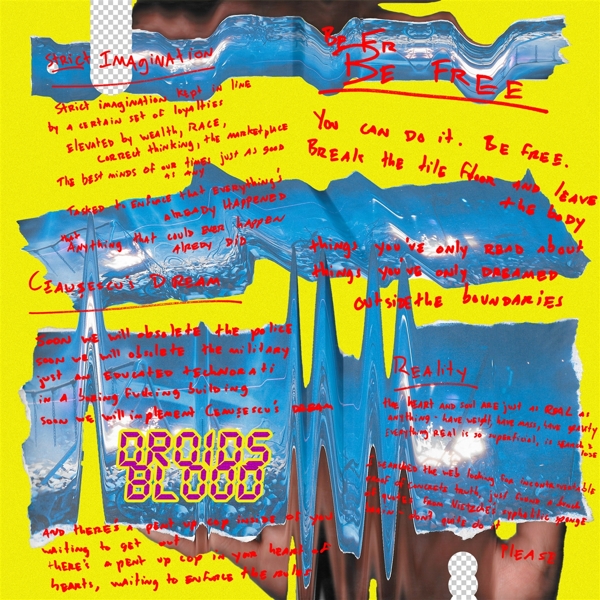 Strict IMAGINATION
Strict imagination kept in line
by a certain set of loyalties
Elevated by wealth, RACE,
correct thinking, the marketplace
The best minds of our times just as good
as any
Tasked to Enforce that everything's
already HAPPENED
that Anything that could EVER HAPPEN
AlREDY DID
Be Fr
BE FREE
You can do it. BE FREE.
BREAK the tile floor and leave
the body
things you've only READ about
things you've only DREAMED
outside the boundaries
Ceauşescu's DREAM
Soon we will obsolete the police
soon we will obsolete the military
just an EDUCATED technorati
in a boring fucking building
soon we will implement Ceausescu's DREAM
DROIDS
BLOOD
And there's a pent up cop inside of you
waiting to get out
there's a pent up cop in your heart of
hearts, waiting to enforce the rules
Reality
the HEART and soul are just as REAL as
anything - have weight, have mass, have gravity
Everything REAL is so superficial, is
I searched the web looking for incontrovertable
proof of concrete truth, just found a bunch
of quotes from Nietzche's syphelitic sponge
brain - don't quote do it
PlEASE